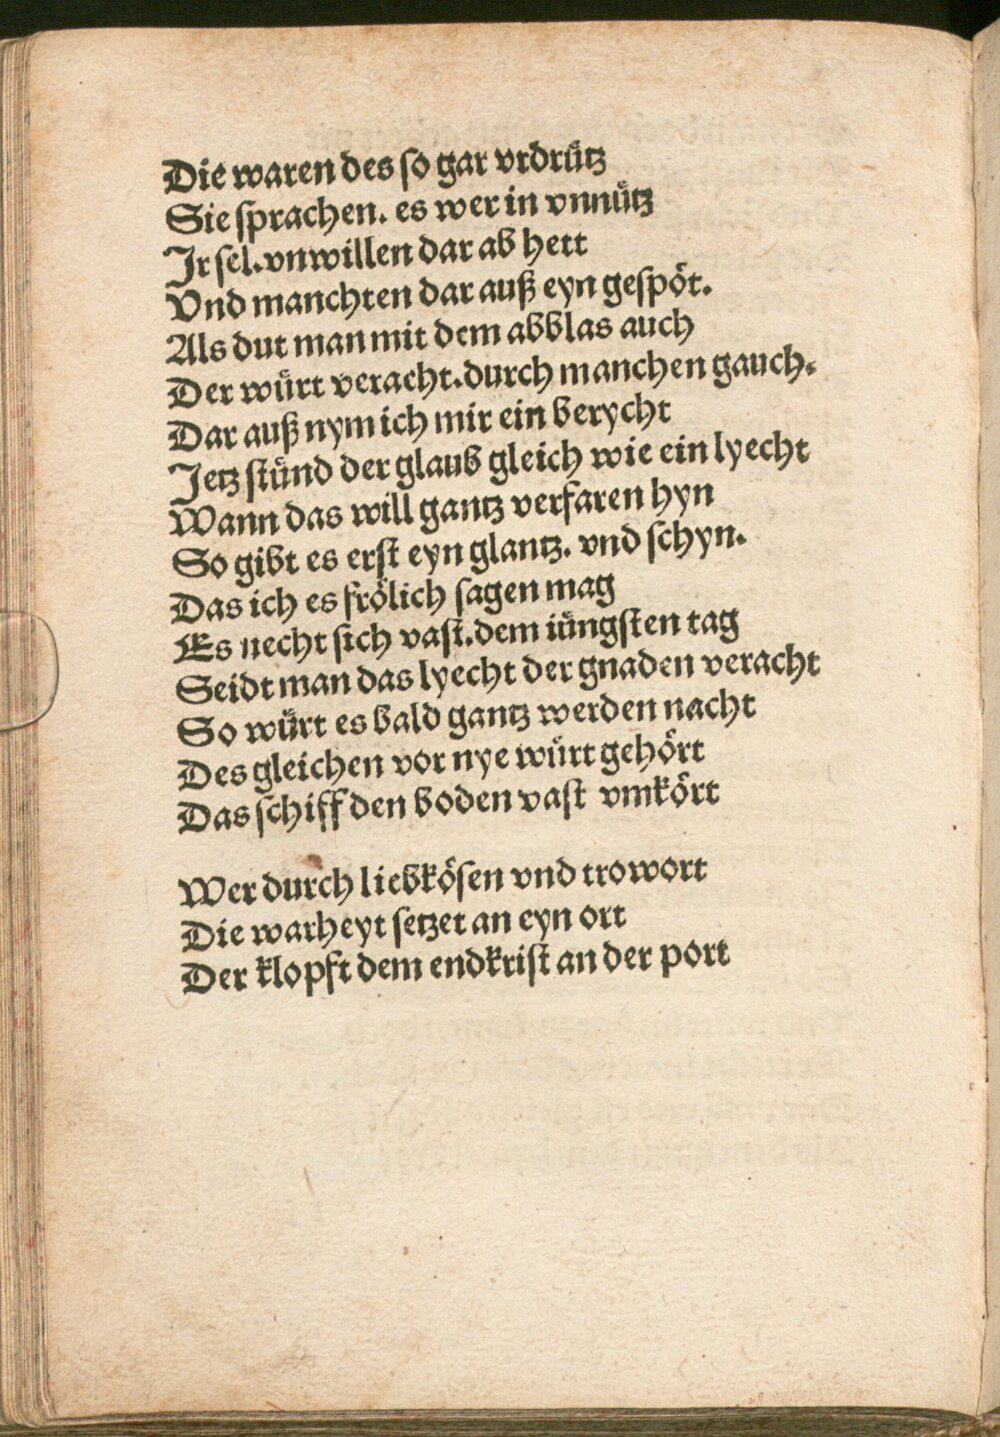 Die waren des so gar vrdrütz
Sie sprachen. es wer in vnnütz
Jr sel. vnwillen dar ab hett
Vnd manchten dar auß eyn gespöt.
Als dut man mit dem abblas auch
Der würt veracht. durch manchen gauch.
Dar auß nym ich mir ein berycht
Jetz stünd der glaub gleich wie ein lyecht
Wann das will gantz verfaren hyn
So gibt es erst eyn glantz. vnd schyn.
Das ich es frölich sagen mag
Es necht sich vast. dem iüngsten tag
Seidt man das lyecht der gnaden veracht
So würt es bald gantz werden nacht
Des gleichen vor nye würt gehört
Das schiff den boden vast vmkört

Wer durch liebkösen vnd trowort
Die warheyt setzet an eyn ort
Der klopft dem endkrist an der port